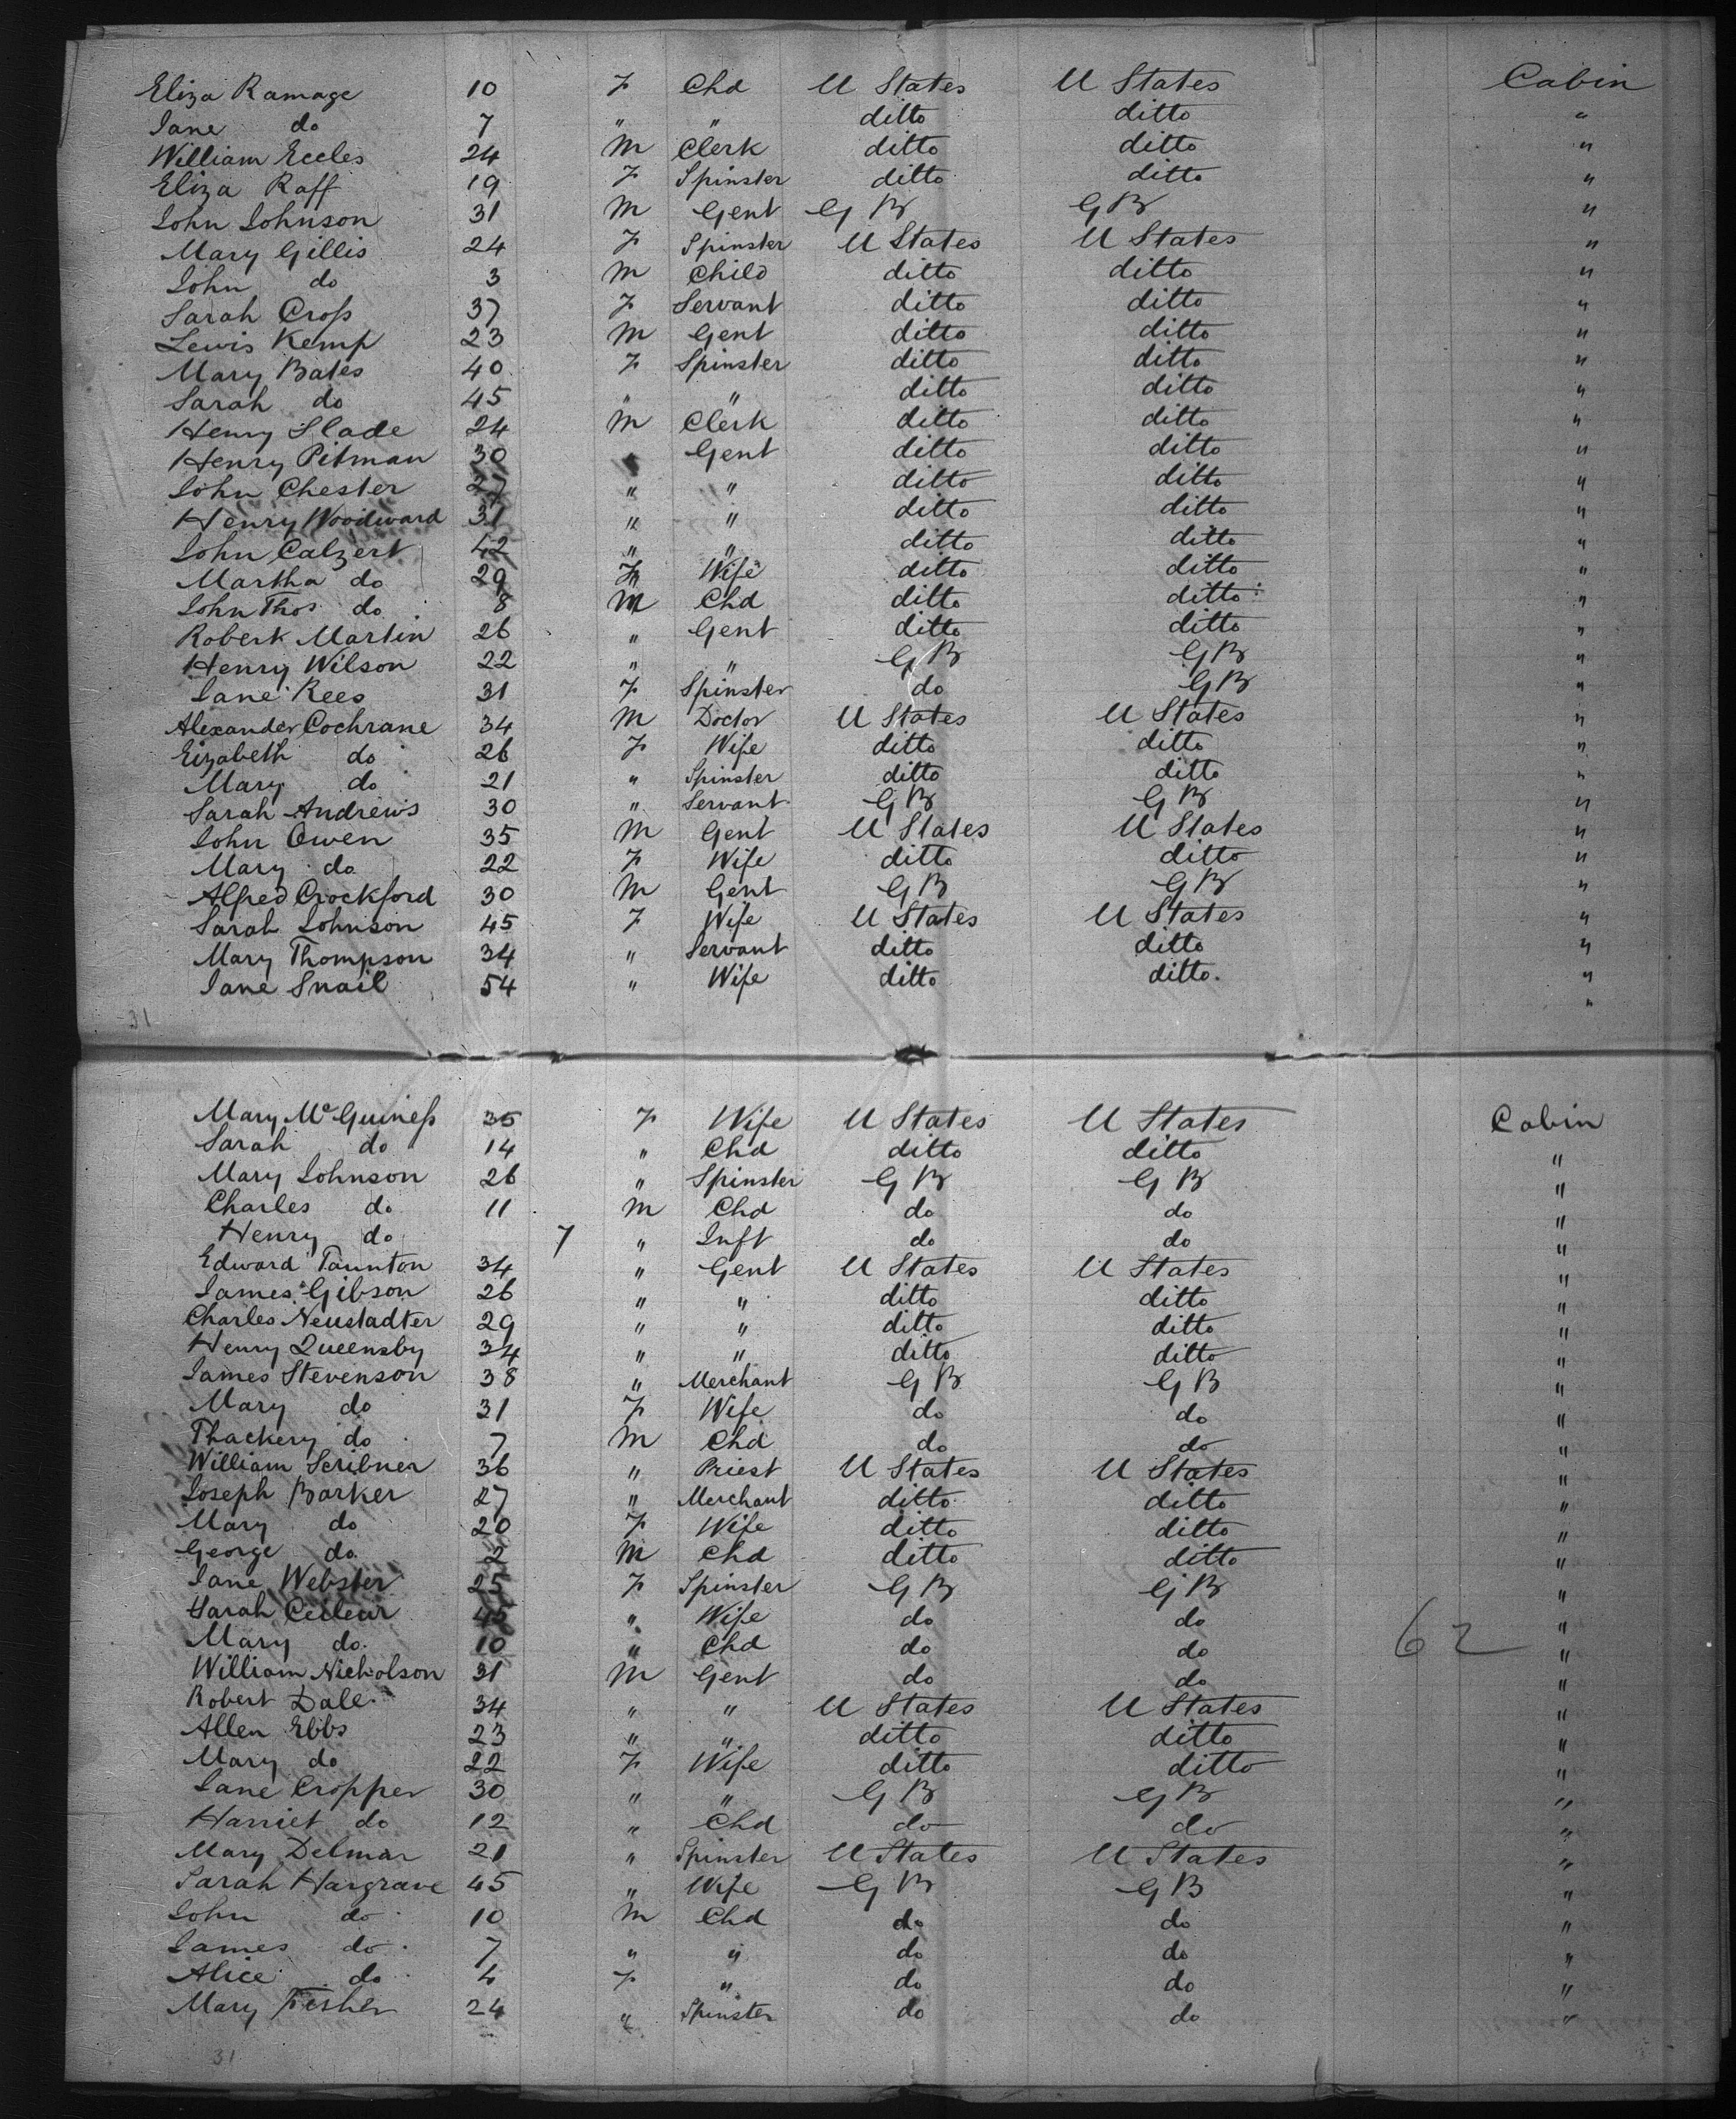 Eliza Ramage 10 F Chd U States U States Cabin
Jane do 7 " " ditto ditto "
William Eccles 24 M Clerk ditto ditto "
Eliza Raff 19 F Spinster ditto ditto "
John Johnson 31 M Gent G B G B "
Mary Gillis 24 F Spinster U States U States "
John do 3 M Child ditto ditto "
Sarah Cross 37 F Servant ditto ditto "
Lewis Kemp 23 M Gent ditto ditto "
Mary Bates 40 F Spinster ditto ditto "
Sarah do 45 " " ditto ditto "
Henry Slade 24 M Clerk ditto ditto "
Henry Pitman 30 Gent ditto ditto "
John Chester 27 " " ditto ditto "
Henry Woodward 31 " " ditto ditto "
John Calzert 42 " " ditto ditto "
Martha do 29 F Wife ditto ditto "
John Thos do 8 M Chd ditto ditto "
Robert Martin 26 " Gent ditto ditto "
Henry Wilson 22 " " G B G B "
Jane Rees 31 F Spinster do G B "
Alexander Cochrane 34 M Doctor U States U States "
Eizabeth do 26 F Wife ditto ditto "
Mary do 21 " Spinster ditto ditto "
Sarah Andrews 30 " Servant G B G B "
John Owen 35 M Gent U States U States "
Mary do 22 F Wife ditto ditto "
Alfred Crockford 30 M Gent G B G B "
Sarah Johnson 45 F Wife U States U States "
Mary Thompson 34 " Servant ditto ditto "
Jane Snail 54 " Wife ditto ditto. "
31 "
Mary McGuiness 35 F Wife U States U States Cabin
Sarah do 14 " Chd ditto ditto "
Mary Johnson 26 " Spinster G B G B "
Charles do 11 M Chd do do "
Henry do 7 " Inft do do "
Edward Taunton 34 " Gent U States U States "
James Gibson 26 " " ditto ditto "
Charles Neustadter 29 " " ditto ditto "
Henry Queensby 34 " " ditto ditto "
James Stevenson 38 " Merchant G B G B "
Mary do 31 F Wife do do "
Thackery do 7 M Chd do do "
William Scribner 36 " Priest U States U States "
Joseph Barker 27 " Merchant ditto ditto "
Mary do 20 F Wife ditto ditto "
George do 2 M Chd ditto ditto "
Jane Webster 25 F Spinster G B G B "
Sarah 45 " Wife do do "
Mary do 10 " Chd do do 62 "
William Nicholson 31 M Gent do do "
Robert Dale 34 " " U States U States "
Allen Ebbs 23 " " ditto ditto "
Mary do 22 F Wife ditto ditto "
Jane Cropper 30 " " G B G B "
Harriet do 12 " Chd do do "
Mary Delmar 21 " Spinster U States U States "
Sarah Hargrave 45 " Wife G B G B "
John do 10 M Chd do do "
James do 7 " " do do "
Alice do 4 F " do do "
Mary Fisher 24 " Spinster do do "
31